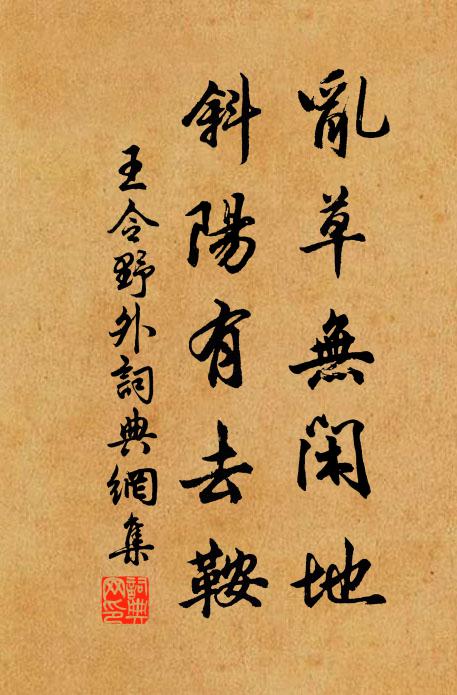 亂草無閑地
斜陽有去鞍
王令野外詞典網集
詞典網印